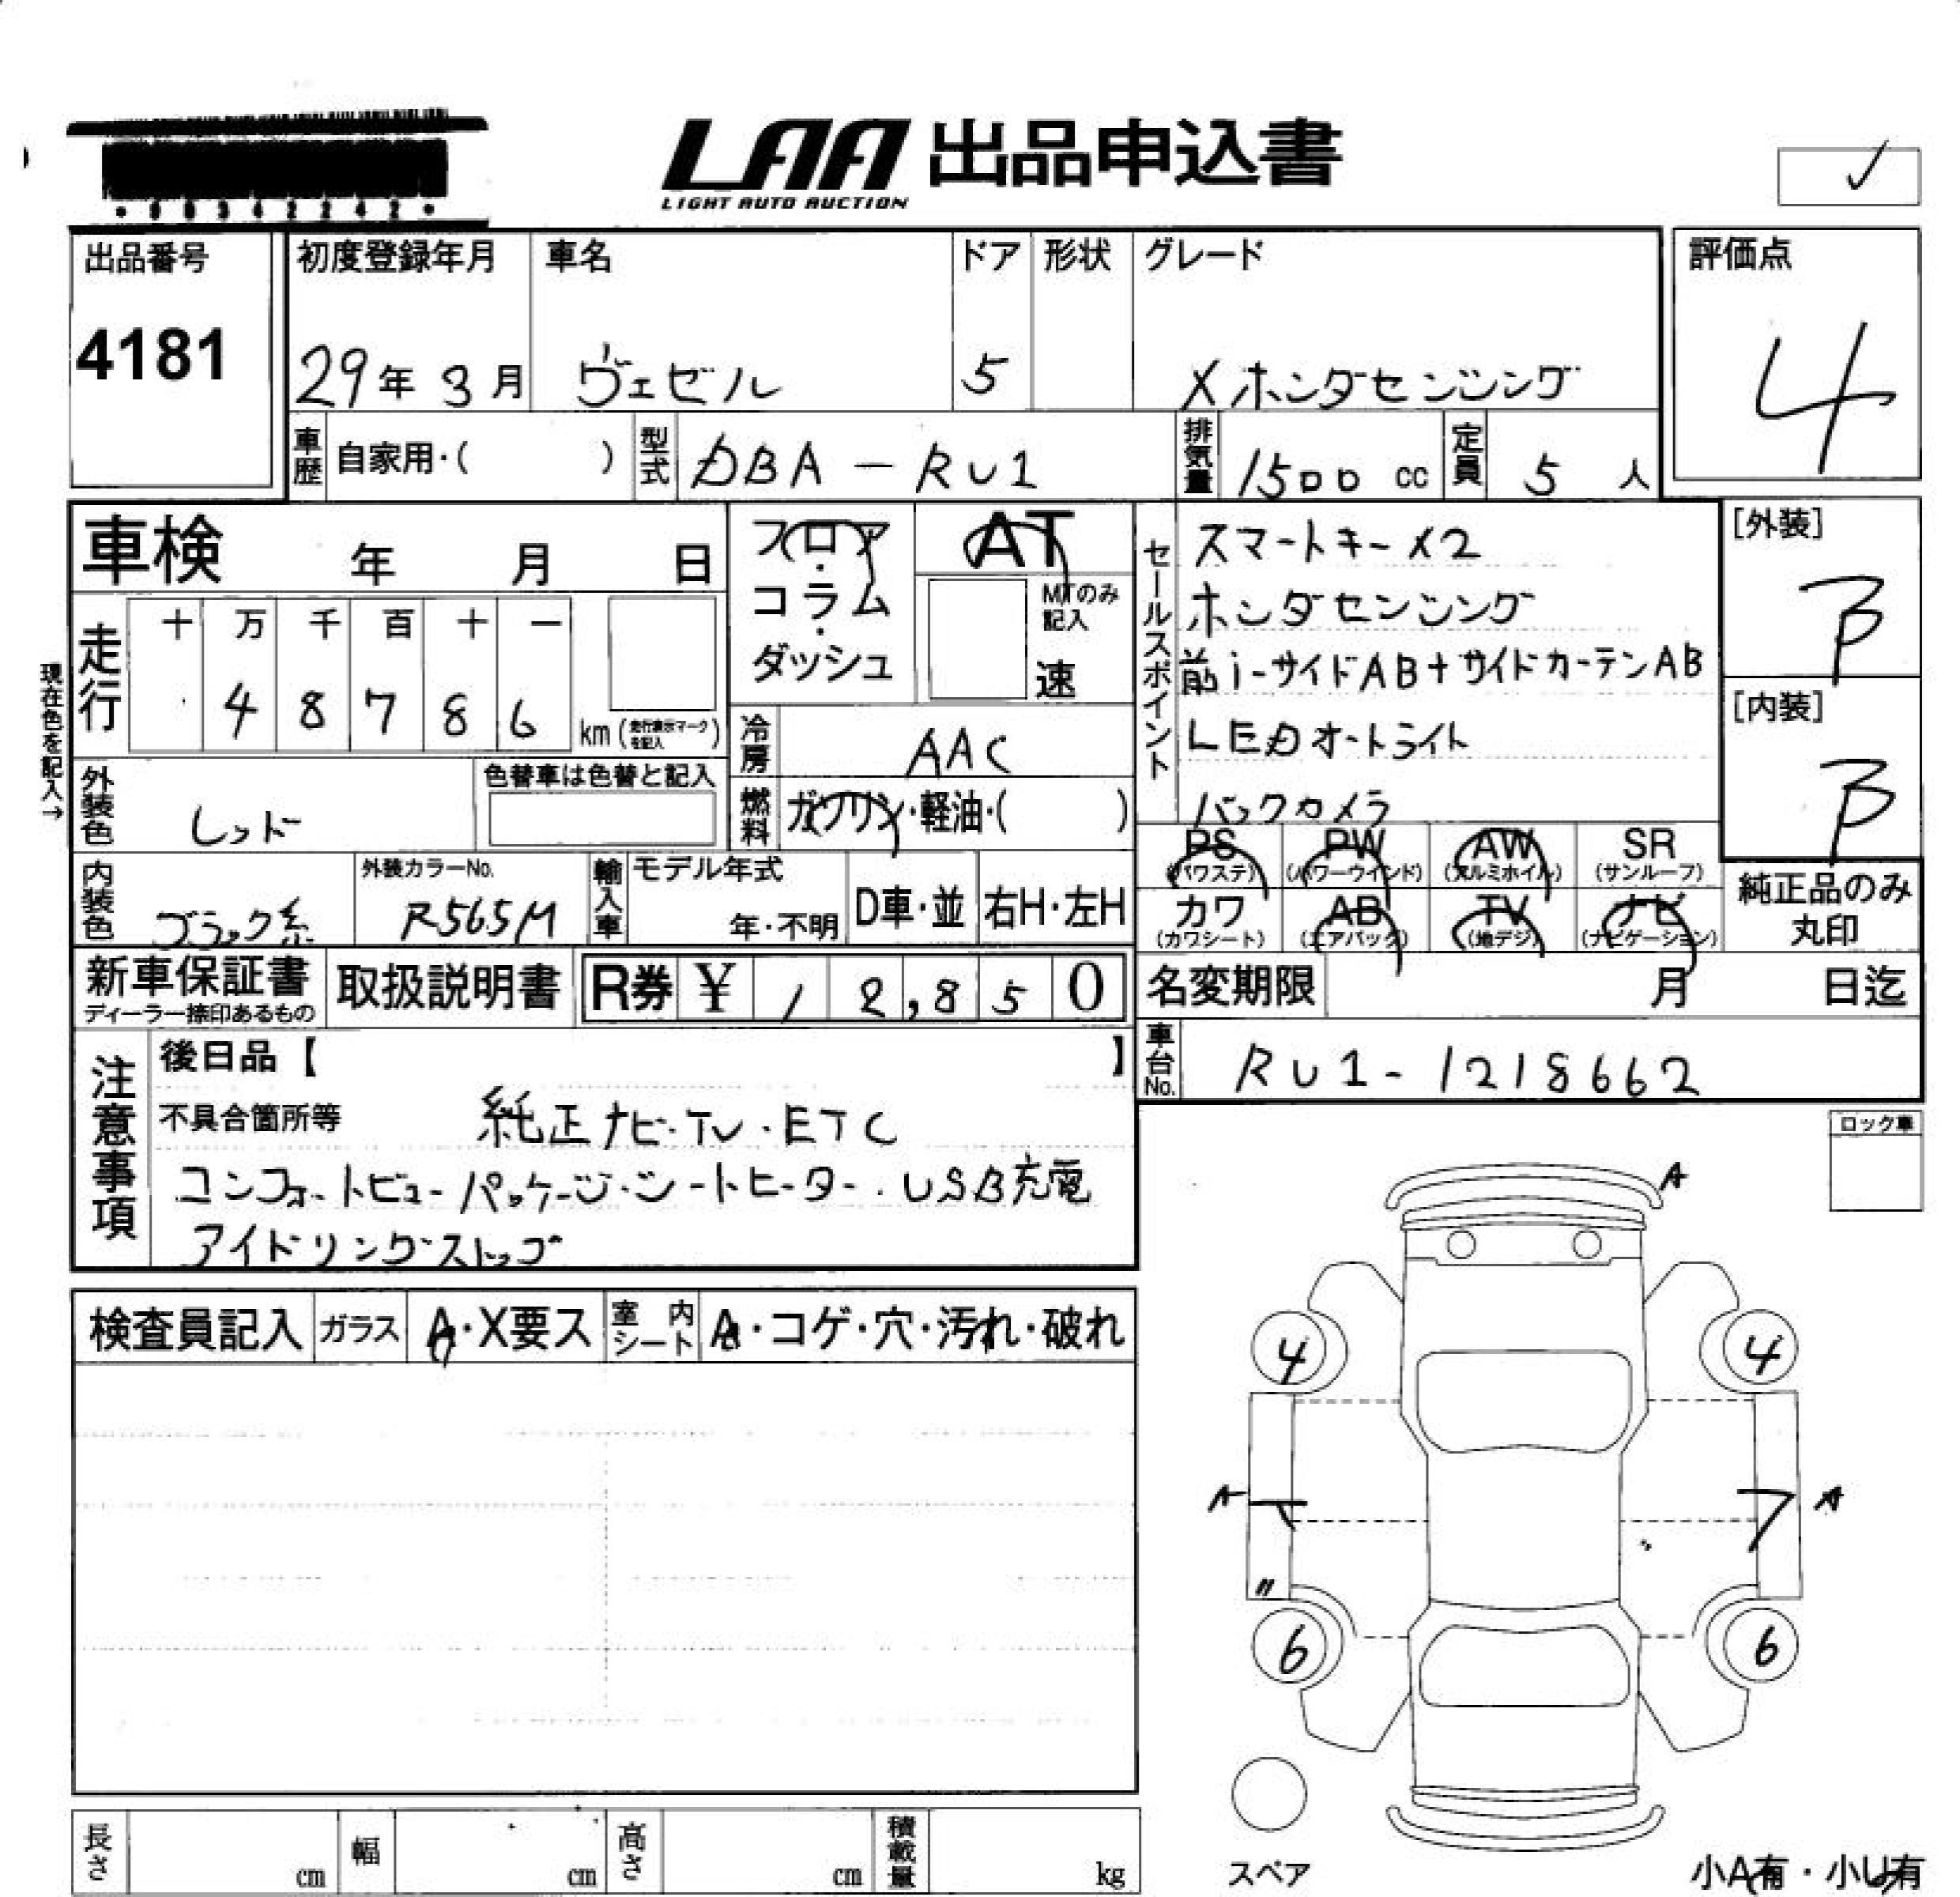 LAA 出品申込書
LIGHT AUTO AUCTION
出品番号 初度登録年月 車名 ドア 形状 グレード 評価点
4181 29年 3月 ヴェゼル 5 Xホンダセンシング 4
車歴 自家用・( ) 型式 DBA-RU1 排気量 1500 cc 定員 5 人
車検 年 月 日 フロア・コラム・ダッシュ AT MTのみ記入 速
セールスポイント スマートキーX2
ホンダセンシング
前i-サイドAB+サイドカーテンAB
LEDオートライト
バックカメラ
[外装] B
[内装] B
現在色を記入→
走行 十 万 千 百 十 一
4 8 7 8 6 km (走行表示マークを記入)
冷房 AAC
外装色 レッド 色替車は色替と記入 燃料 ガソリン・軽油・( )
PS (パワステ) PW (パワーウインド) AW (アルミホイル) SR (サンルーフ)
カワ (カワシート) AB (エアバック) TV (地デジ) ナビ (ナビゲーション)
純正品のみ丸印
内装色 ブラック系 外装カラーNo. R565M 輸入車 モデル年式 年・不明 D車・並 右H・左H
新車保証書 ディーラー捺印あるもの 取扱説明書 R券 ¥ 1 2,8 5 0 名変期限 月 日迄
車台No. RU1-1218662
注意事項 後日品【 】
不具合箇所等 純正ナビ・TV・ETC
コンフォートビューパッケージ・シートヒーター・USB充電
アイドリングストップ
ロック車
検査員記入 ガラス A・X要ス 室内シート A・コゲ・穴・汚れ・破れ
A
4 4
A A
〃
6 6
スペア
小A有・小U有
長さ cm 幅 cm 高さ cm 積載量 kg